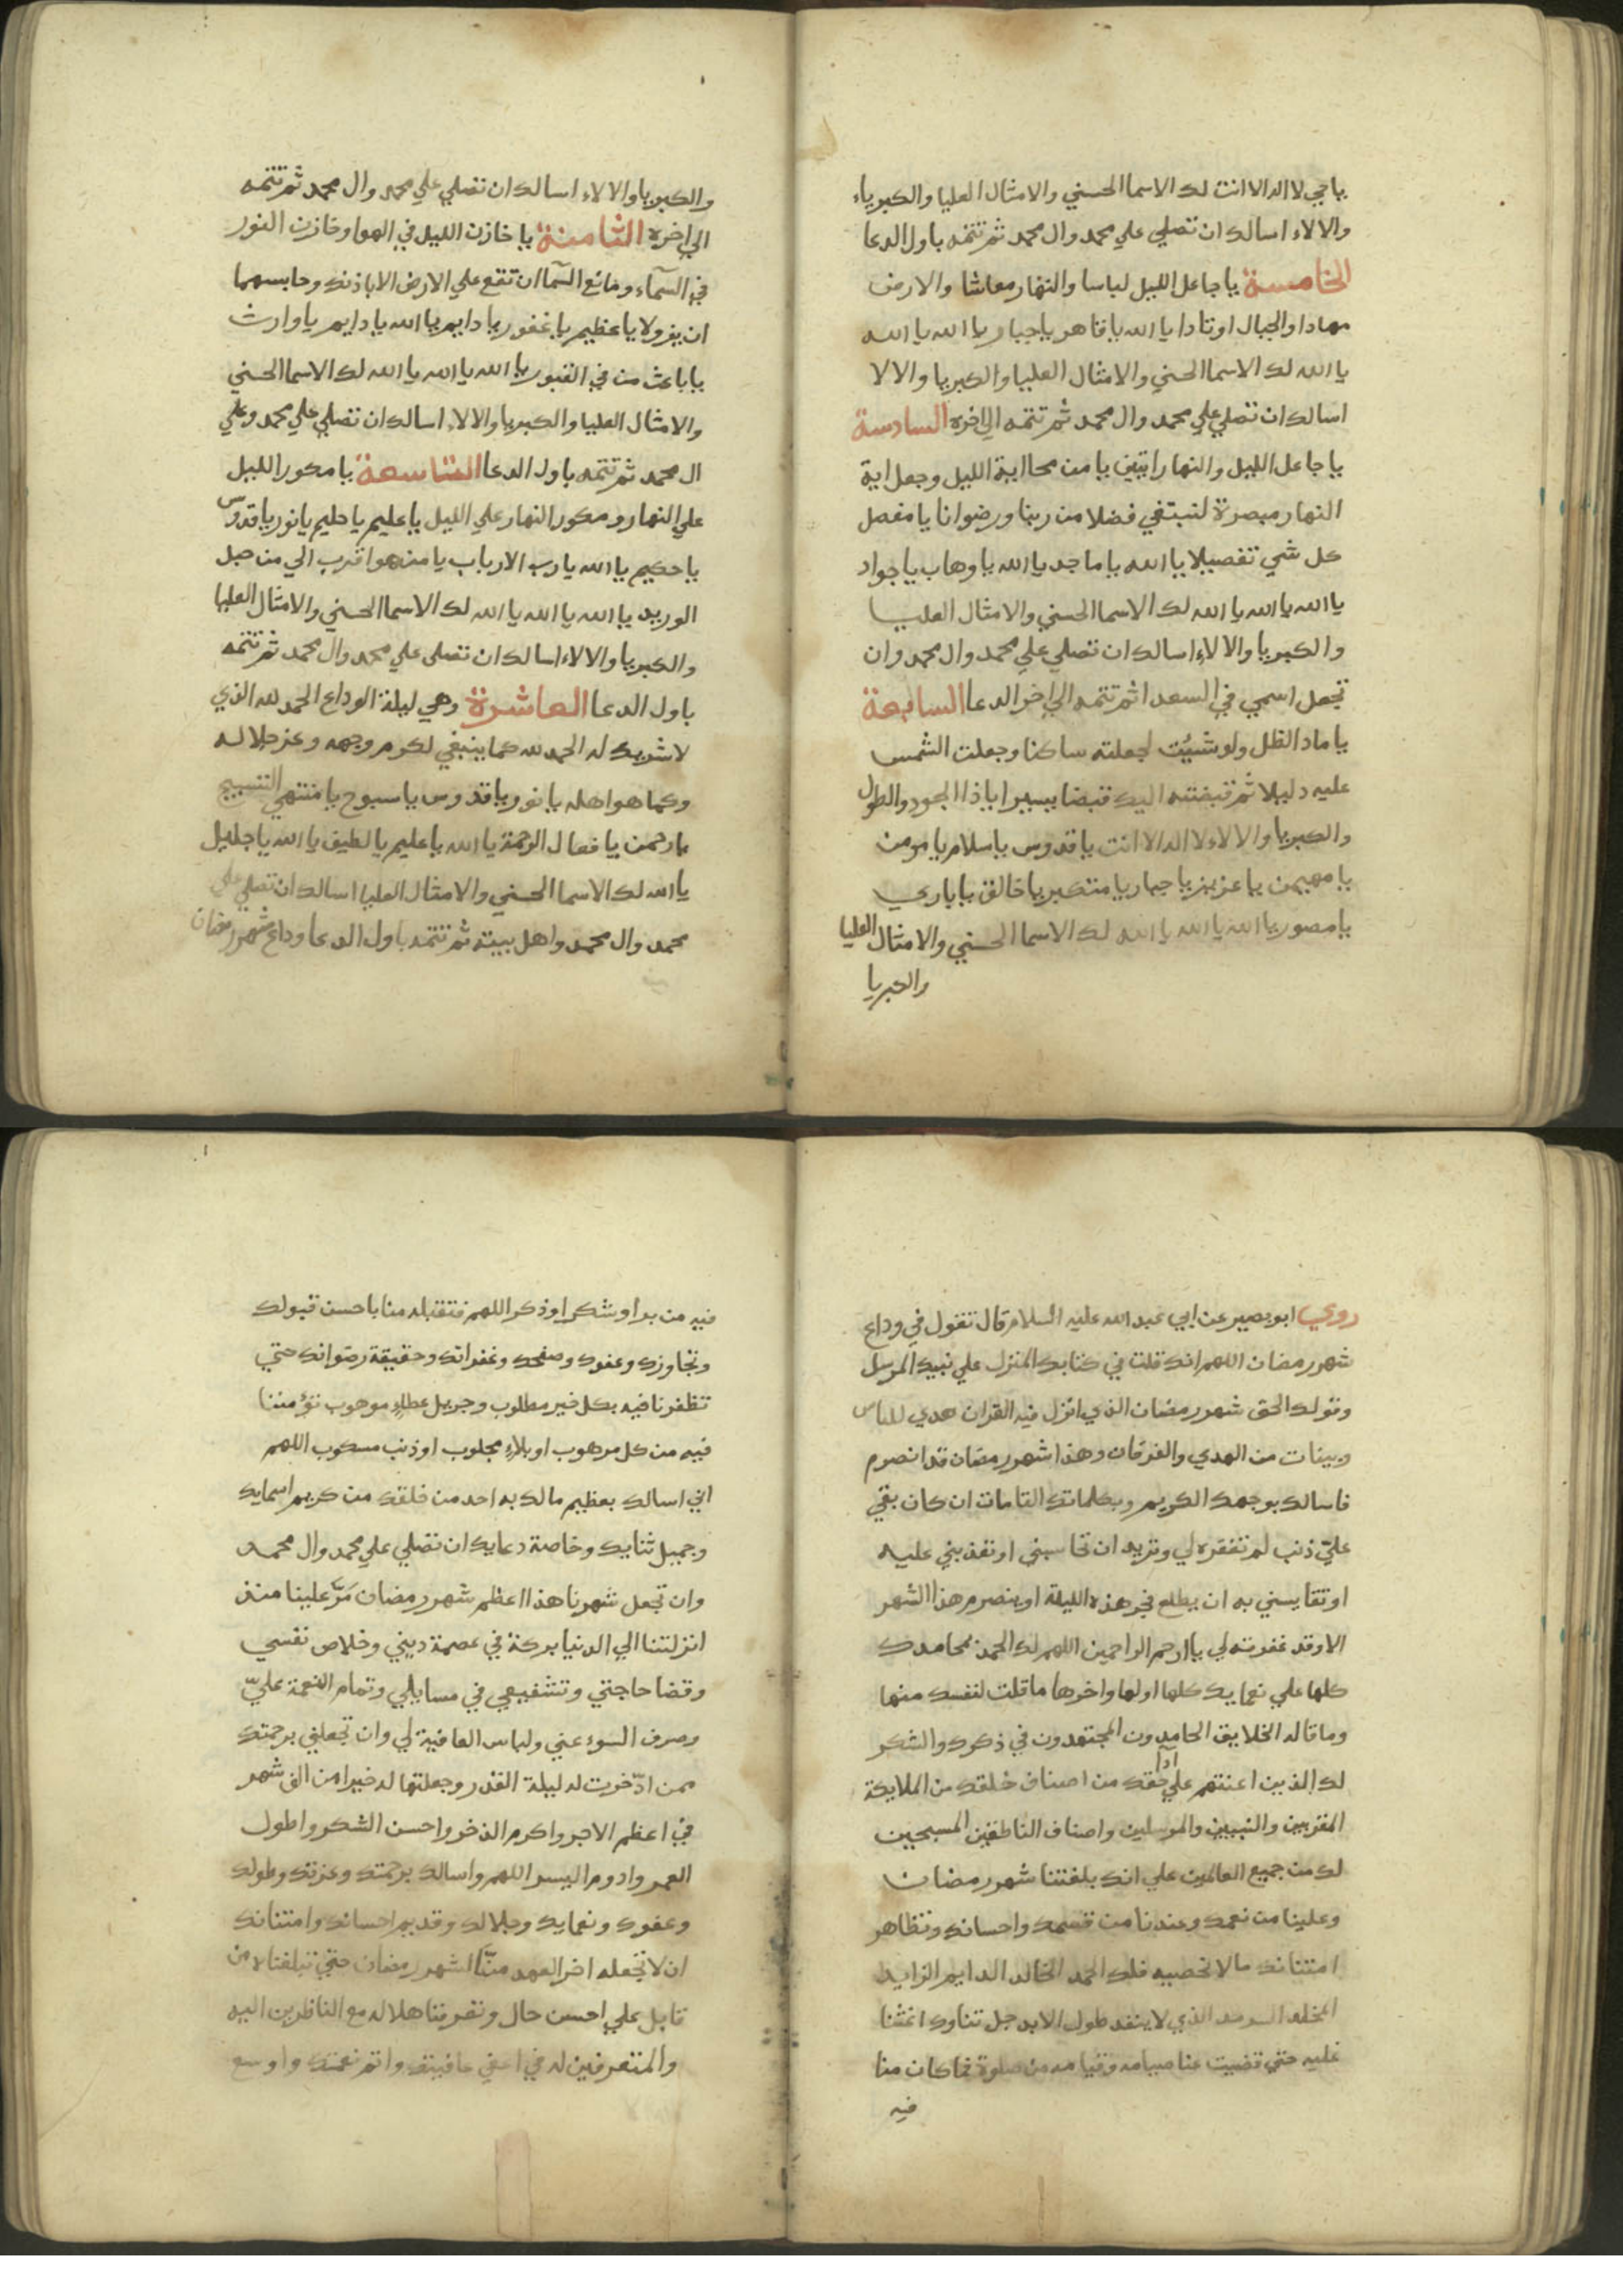 ياحي لا اله الا انت لك الاسما الحسني والامثال العليا والكبرياء
والالاء اسالك ان تصلي علي محمد وال محمد ثم تتمه باول الدعا
الخامسة يا جاعل الليل لباسا والنهار معاشا والارض
مهادا والجبال اوتادا يا الله يا قاهر يا جبار يا الله يا الله
يا الله لك الاسما الحسني والامثال العليا والكبريا والالا
اسالك ان تصلي علي محمد وال محمد ثم تتمه الي اخره السادسة
يا جاعل الليل والنهار ايتين يا من محا اية الليل وجعل اية
النهار مبصرة لنبتغي فضلا من ربنا ورضوانا يا مفصل
كل شي تفصيلا يا الله يا ماجد يا الله يا وهاب يا جواد
يا الله يا الله يا الله لك الاسما الحسني والامثال العليا
والكبريا والالاء اسالك ان تصلي علي محمد وال محمد وان
تجعل اسمي في السعدا ثم تتمه الي اخر الدعا السابعة
يا ماد الظل ولو شئت لجعلته ساكنا وجعلت الشمس
عليه دليلا ثم قبضته اليك قبضا يسيرا يا ذا الجود والطول
والكبريا والالاء لا اله الا انت يا قدوس يا سلام يا مومن
يا مهيمن يا عزيز يا جبار يا متكبر يا خالق يا باري
يا مصور يا الله يا الله يا الله لك الاسما الحسني والامثال العليا
والكبريا
والكبريا والالاء اسالك ان تصلي علي محمد وال محمد ثم تتمه
الي اخره الثامنة يا خازن الليل في الهوا وخازن النور
في السمآء ومانع السمآ ان تقع علي الارض الا باذنك وحابسهما
ان يزولا يا عظيم يا غفور يا دايم يا الله يا دايم يا وارث
يا باعث من في القبور يا الله يا الله يا الله لك الاسما الحسني
والامثال العليا والكبريا والالاء اسالك ان تصلي علي محمد وعلي
ال محمد ثم تتمه باول الدعا التاسعة يا مكور الليل
علي النهار ومكور النهار علي الليل يا عليم يا حليم يا نور يا قدوس
يا حكيم يا الله يا رب الارباب يا من هو اقرب الي من حبل
الوريد يا الله يا الله يا الله لك الاسما الحسني والامثال العليا
والكبريا والالاء اسالك ان تصلي علي محمد وال محمد ثم تتمه
باول الدعا العاشرة وهي ليلة الوداع الحمد لله الذي
لا شريك له الحمد لله كما ينبغي لكرم وجهه وعز جلاله
وكما هو اهله يا نور يا قدوس يا سبوح يا منتهي التسبيح
يا رحمن يا فعال الرحمة يا الله يا عليم يا لطيف يا الله يا جليل
يا الله لك الاسما الحسني والامثال العليا اسالك ان تصلي علي
محمد وال محمد واهل بيته ثم تتمه باول الدعا وداع شهر رمضان
روي ابو بصير عن ابي عبد الله عليه السلام قال تقول في وداع
شهر رمضان اللهم انك قلت في كتابك المنزل علي نبيك المرسل
وقولك الحق شهر رمضان الذي انزل فيه القران هدي للناس
وبينات من الهدي والفرقان وهذا شهر رمضان قد انصرم
فاسالك بوجهك الكريم وبكلماتك التامات ان كان بقي
عليّ ذنب لم تغفره لي وتريد ان تحاسبني او تعذبني عليه
او تقايسني به ان يطلع فجر هذه الليلة او ينصرم هذا الشهر
الا وقد غفرته لي يا ارحم الراحمين اللهم لك الحمد بمحامدك
كلها علي نعمايك كلها اولها واخرها ما قلت لنفسك منها
وما قاله الخلايق الحامدون المجتهدون في ذكرك والشكر
لك الذين اعنتهم علي ادا حقك من اصناف خلقك من الملايكة
المقربين والنبيين والمرسلين واصناف الناطقين المسبحين
لك من جميع العالمين علي انك بلغتنا شهر رمضان
وعلينا من نعمك وعندنا من قسمك واحسانك وتظاهر
امتنانك ما لا نحصيه فلك الحمد الخالد الدايم الزايد
المخلد السرمد الذي لا ينفد طول الابد جل ثناوك اعنتنا
عليه حتي قضيت عنا صيامه وقيامه من صلوة فما كان منا
فيه
فيه من بر او شكر او ذكر اللهم فتقبله منا باحسن قبولك
وتجاوزك وعفوك وصفحك وغفرانك وحقيقة رضوانك حتي
تظفرنا فيه بكل خير مطلوب وجزيل عطاء موهوب تؤمننا
فيه من كل مرهوب او بلاء مجلوب او ذنب مسكوب اللهم
اني اسالك بعظيم ما لك به احد من خلقك من كريم اسمايك
وجميل ثنايك وخاصة دعايك ان تصلي علي محمد وال محمد
وان تجعل شهرنا هذا اعظم شهر رمضان مرّ علينا منذ
انزلتنا الي الدنيا بركة في عصمة ديني وخلاص نفسي
وقضا حاجتي وتشفيعي في مسايلي وتمام النعمة عليّ
وصرف السوء عني ولباس العافية لي وان تجعلني برحمتك
ممن ادّخرت له ليلة القدر وجعلتها له خيرا من الف شهر
في اعظم الاجر واكرم الذخر واحسن الشكر واطول
العمر وادوم اليسر اللهم واسالك برحمتك وعزتك وطولك
وعفوك ونعمايك وجلالك وقديم احسانك وامتنانك
ان لا تجعله اخر العهد منّا لشهر رمضان حتي تبلغناه من
قابل علي احسن حال وتعرفنا هلاله مع الناظرين اليه
والمتعرفين له في اعفي عافيتك واتم نعمتك واوسع